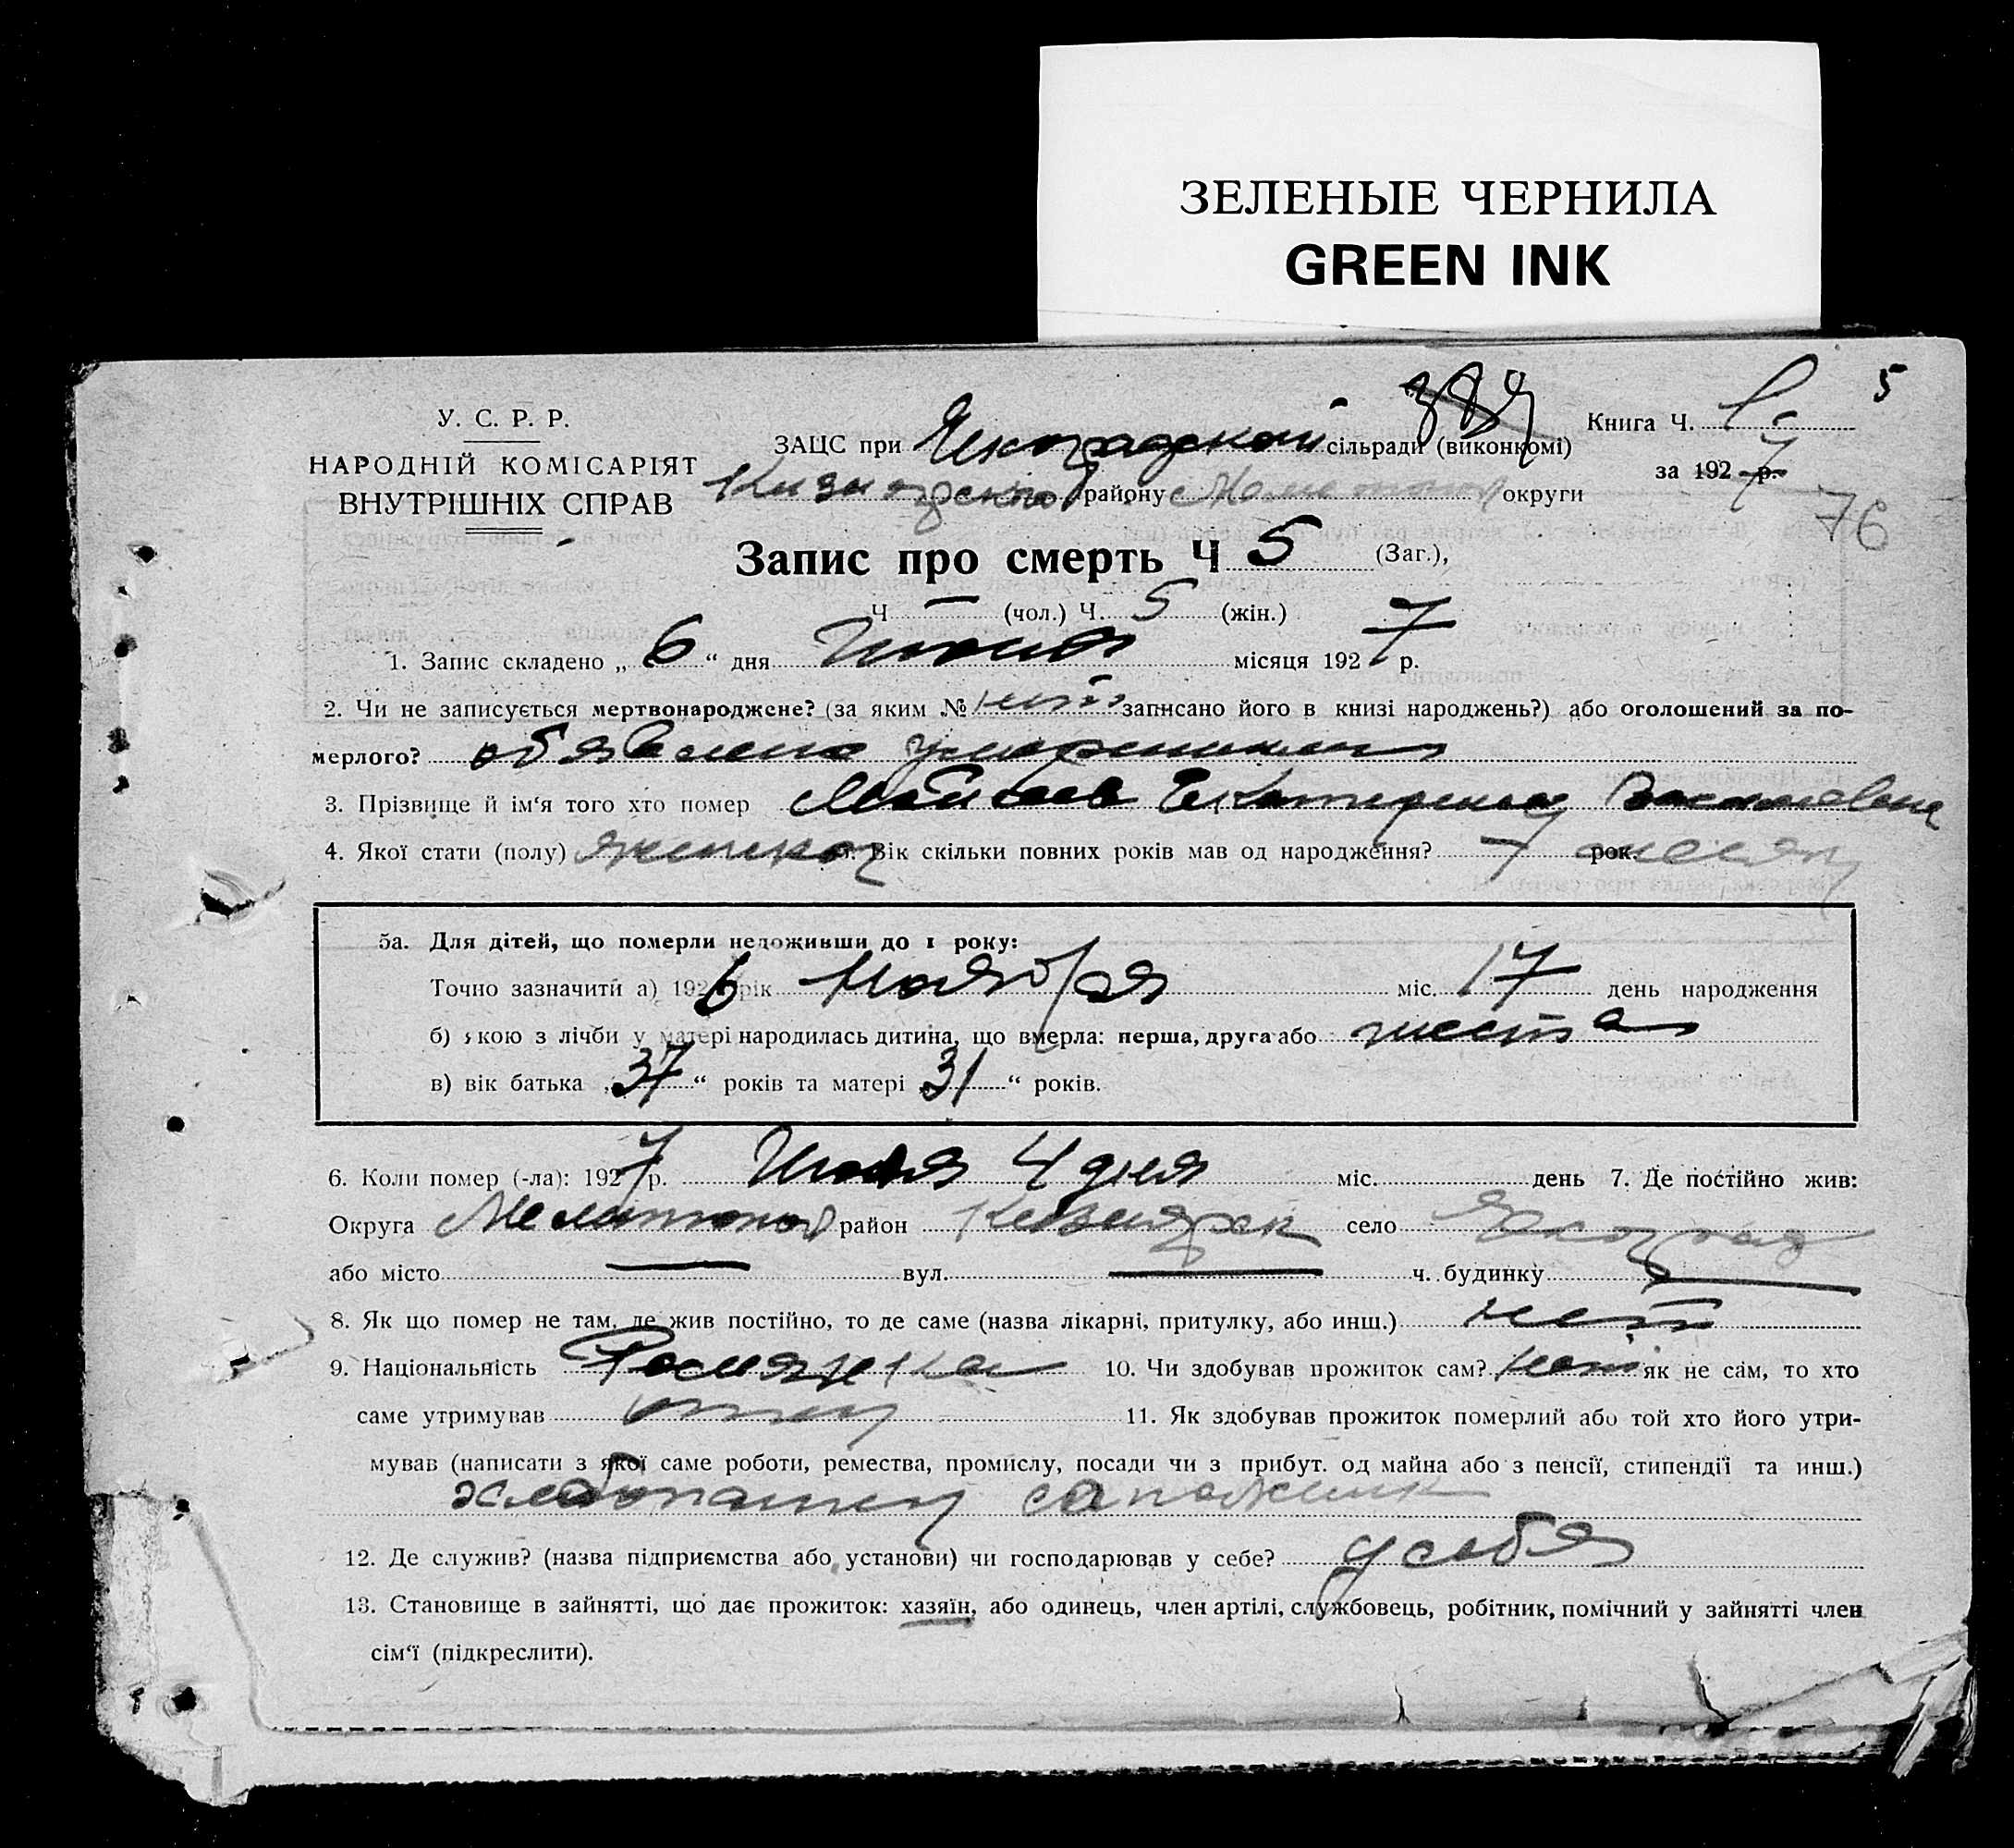 ЗЕЛЕНЫЕ ЧЕРНИЛА
GREEN INK
5
У. С. Р. Р.
НАРОДНІЙ КОМІСАРІЯТ
ВНУТРІШНІХ СПРАВ
ЗАЦС при сільради (виконкомі)
району округи
Книга Ч.
за 1927 р.
76
Запис про смерть Ч 5 (Заг.),
Ч — (чол.) Ч. 5 (жін.)
1. Запис складено „ 6 “ дня місяця 1927 р.
2. Чи не записується мертвонароджене? (за яким № нет записано його в книзі народжень?) або оголошений за по-
мерлого?
3. Прізвище й ім‘я того хто помер Екатерина
4. Якої стати (полу) женской 5. Вік скільки повних років мав од народження? 7 рок. месяц
5а. Для дітей, що померли недоживши до 1 року:
Точно зазначити а) 1926 рік Ноября міс. 17 день народження
б) якою з лічби у матері народилась дитина, що вмерла: перша, друга або шеста
в) вік батька „37“ років та матері „31“ років.
6. Коли помер (-ла): 1927 р. 4 дня міс. день 7. Де постійно жив:
Округа Мелитопол район село
або місто — вул. — ч. будинку —
8. Як що помер не там, де жив постійно, то де саме (назва лікарні, притулку, або инш.) нет
9. Національність 10. Чи здобував прожиток сам? нет як не сам, то хто
саме утримував отец 11. Як здобував прожиток померлий або той хто його утри-
мував (написати з якої саме роботи, ремества, промислу, посади чи з прибут. од майна або з пенсії, стипендії та инш.)
хлебопашец сапожник
12. Де служив? (назва підприємства або установи) чи господарював у себе? у себя
13. Становище в зайнятті, що дає прожиток: хазяїн, або одинець, член артілі, службовець, робітник, помічний у зайнятті член
сім‘ї (підкреслити).